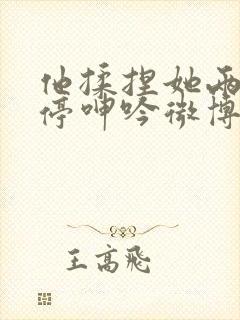 他揉捏她两
停呻吟微博
王高飞